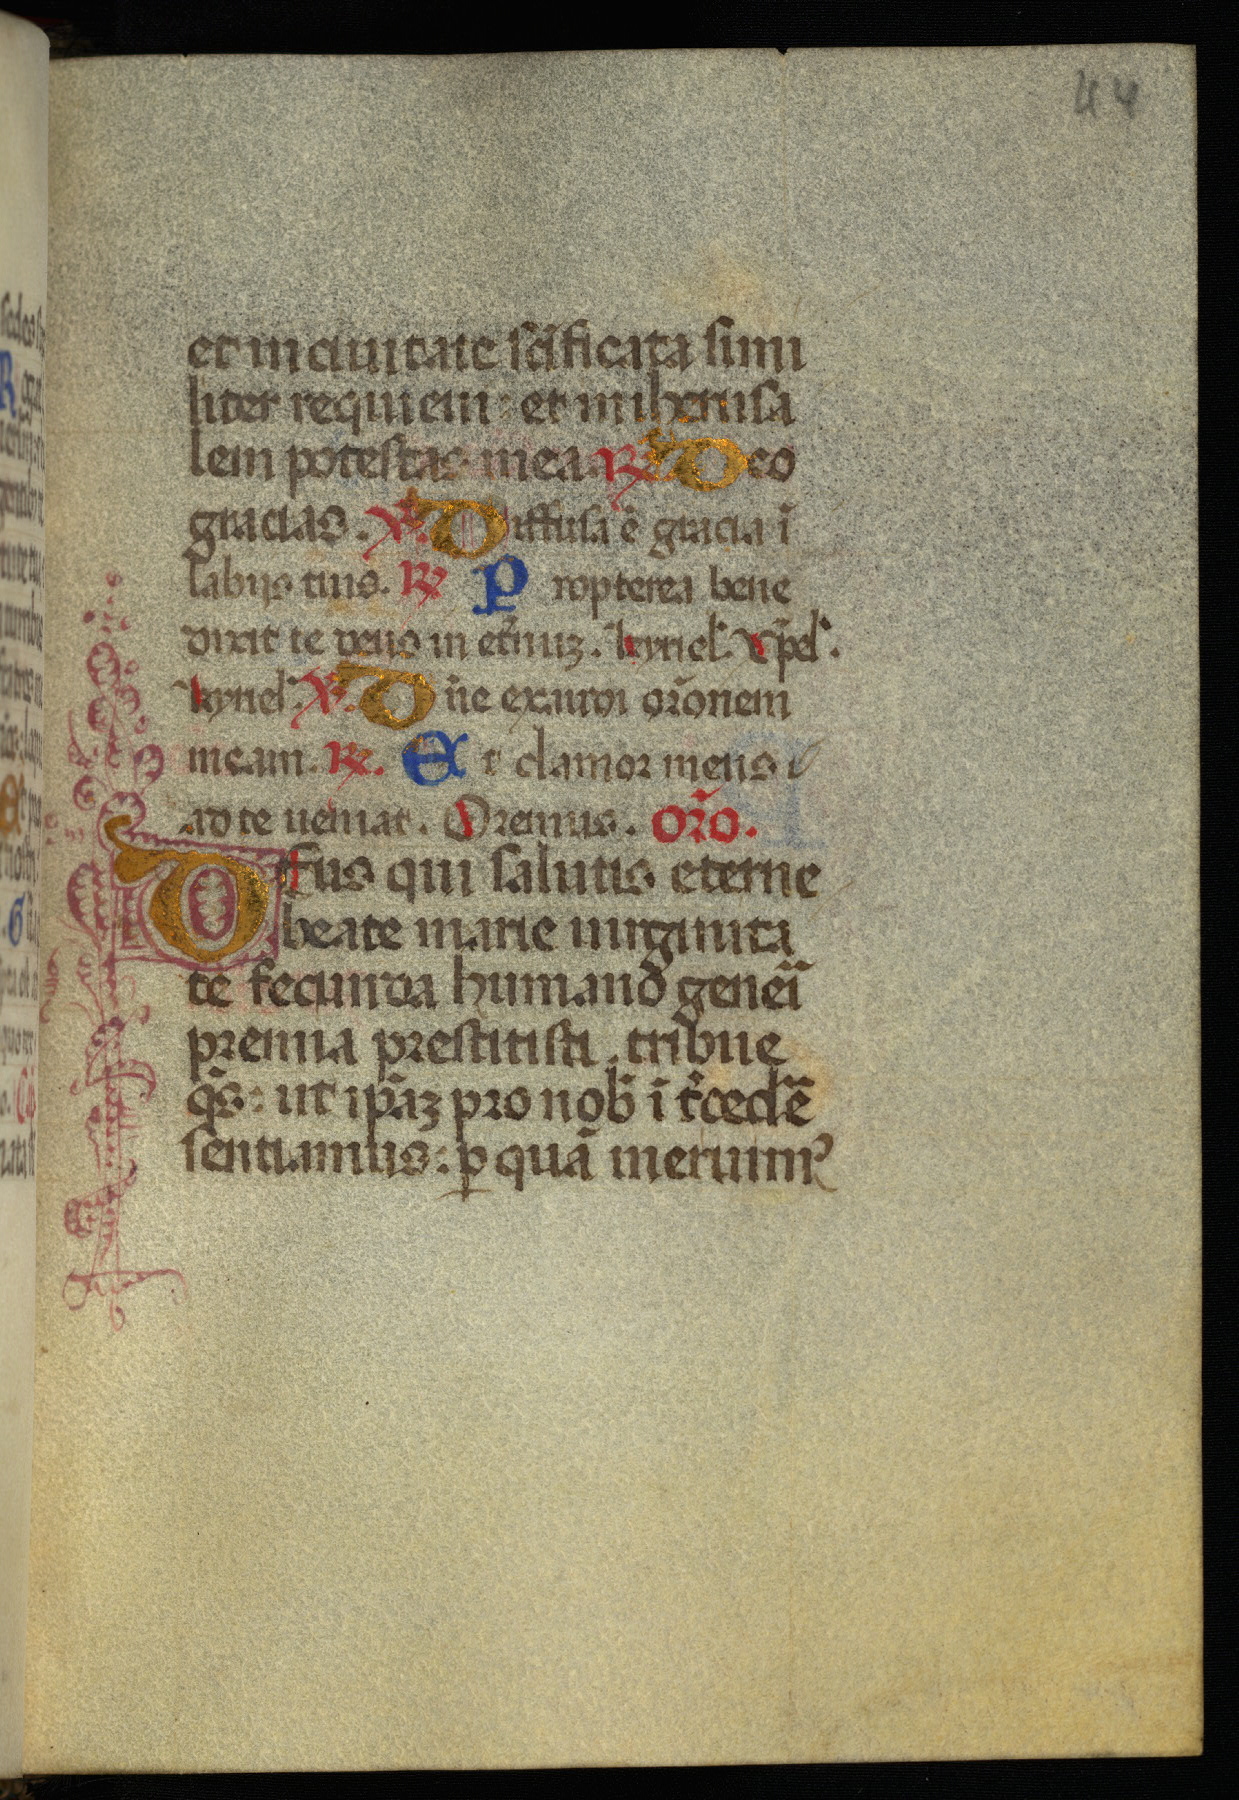 44
et in ciuitate sc̄ificata simi
liter requiem : et in iherusa
lem potestas mea. ℟ Deo
gracias. ℣. Diffusa ē gracia ī
labijs tuis. ℟ Propterea bene
dixit te deus in et̄nuꝫ. kyriel. xp̄el.
kyriel. ℣. Dn̄e exaudi or̄onem
meam. ℟. Et clamor meus
ad te ueniat. Oremus. or̄o.
Deus qui salutis eterne
beate marie uirginita
te fecunda humano gene͞i
premia prestitisti . tribue
q̄s : ut ip̄aꝫ pro nob̄ īt̄cedē
sentiamus : ꝑ quā meruim᷒